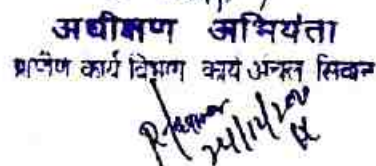 अधीक्षण अभियंता
ग्रामीण कार्य विभाग कार्य अंचल सिवान